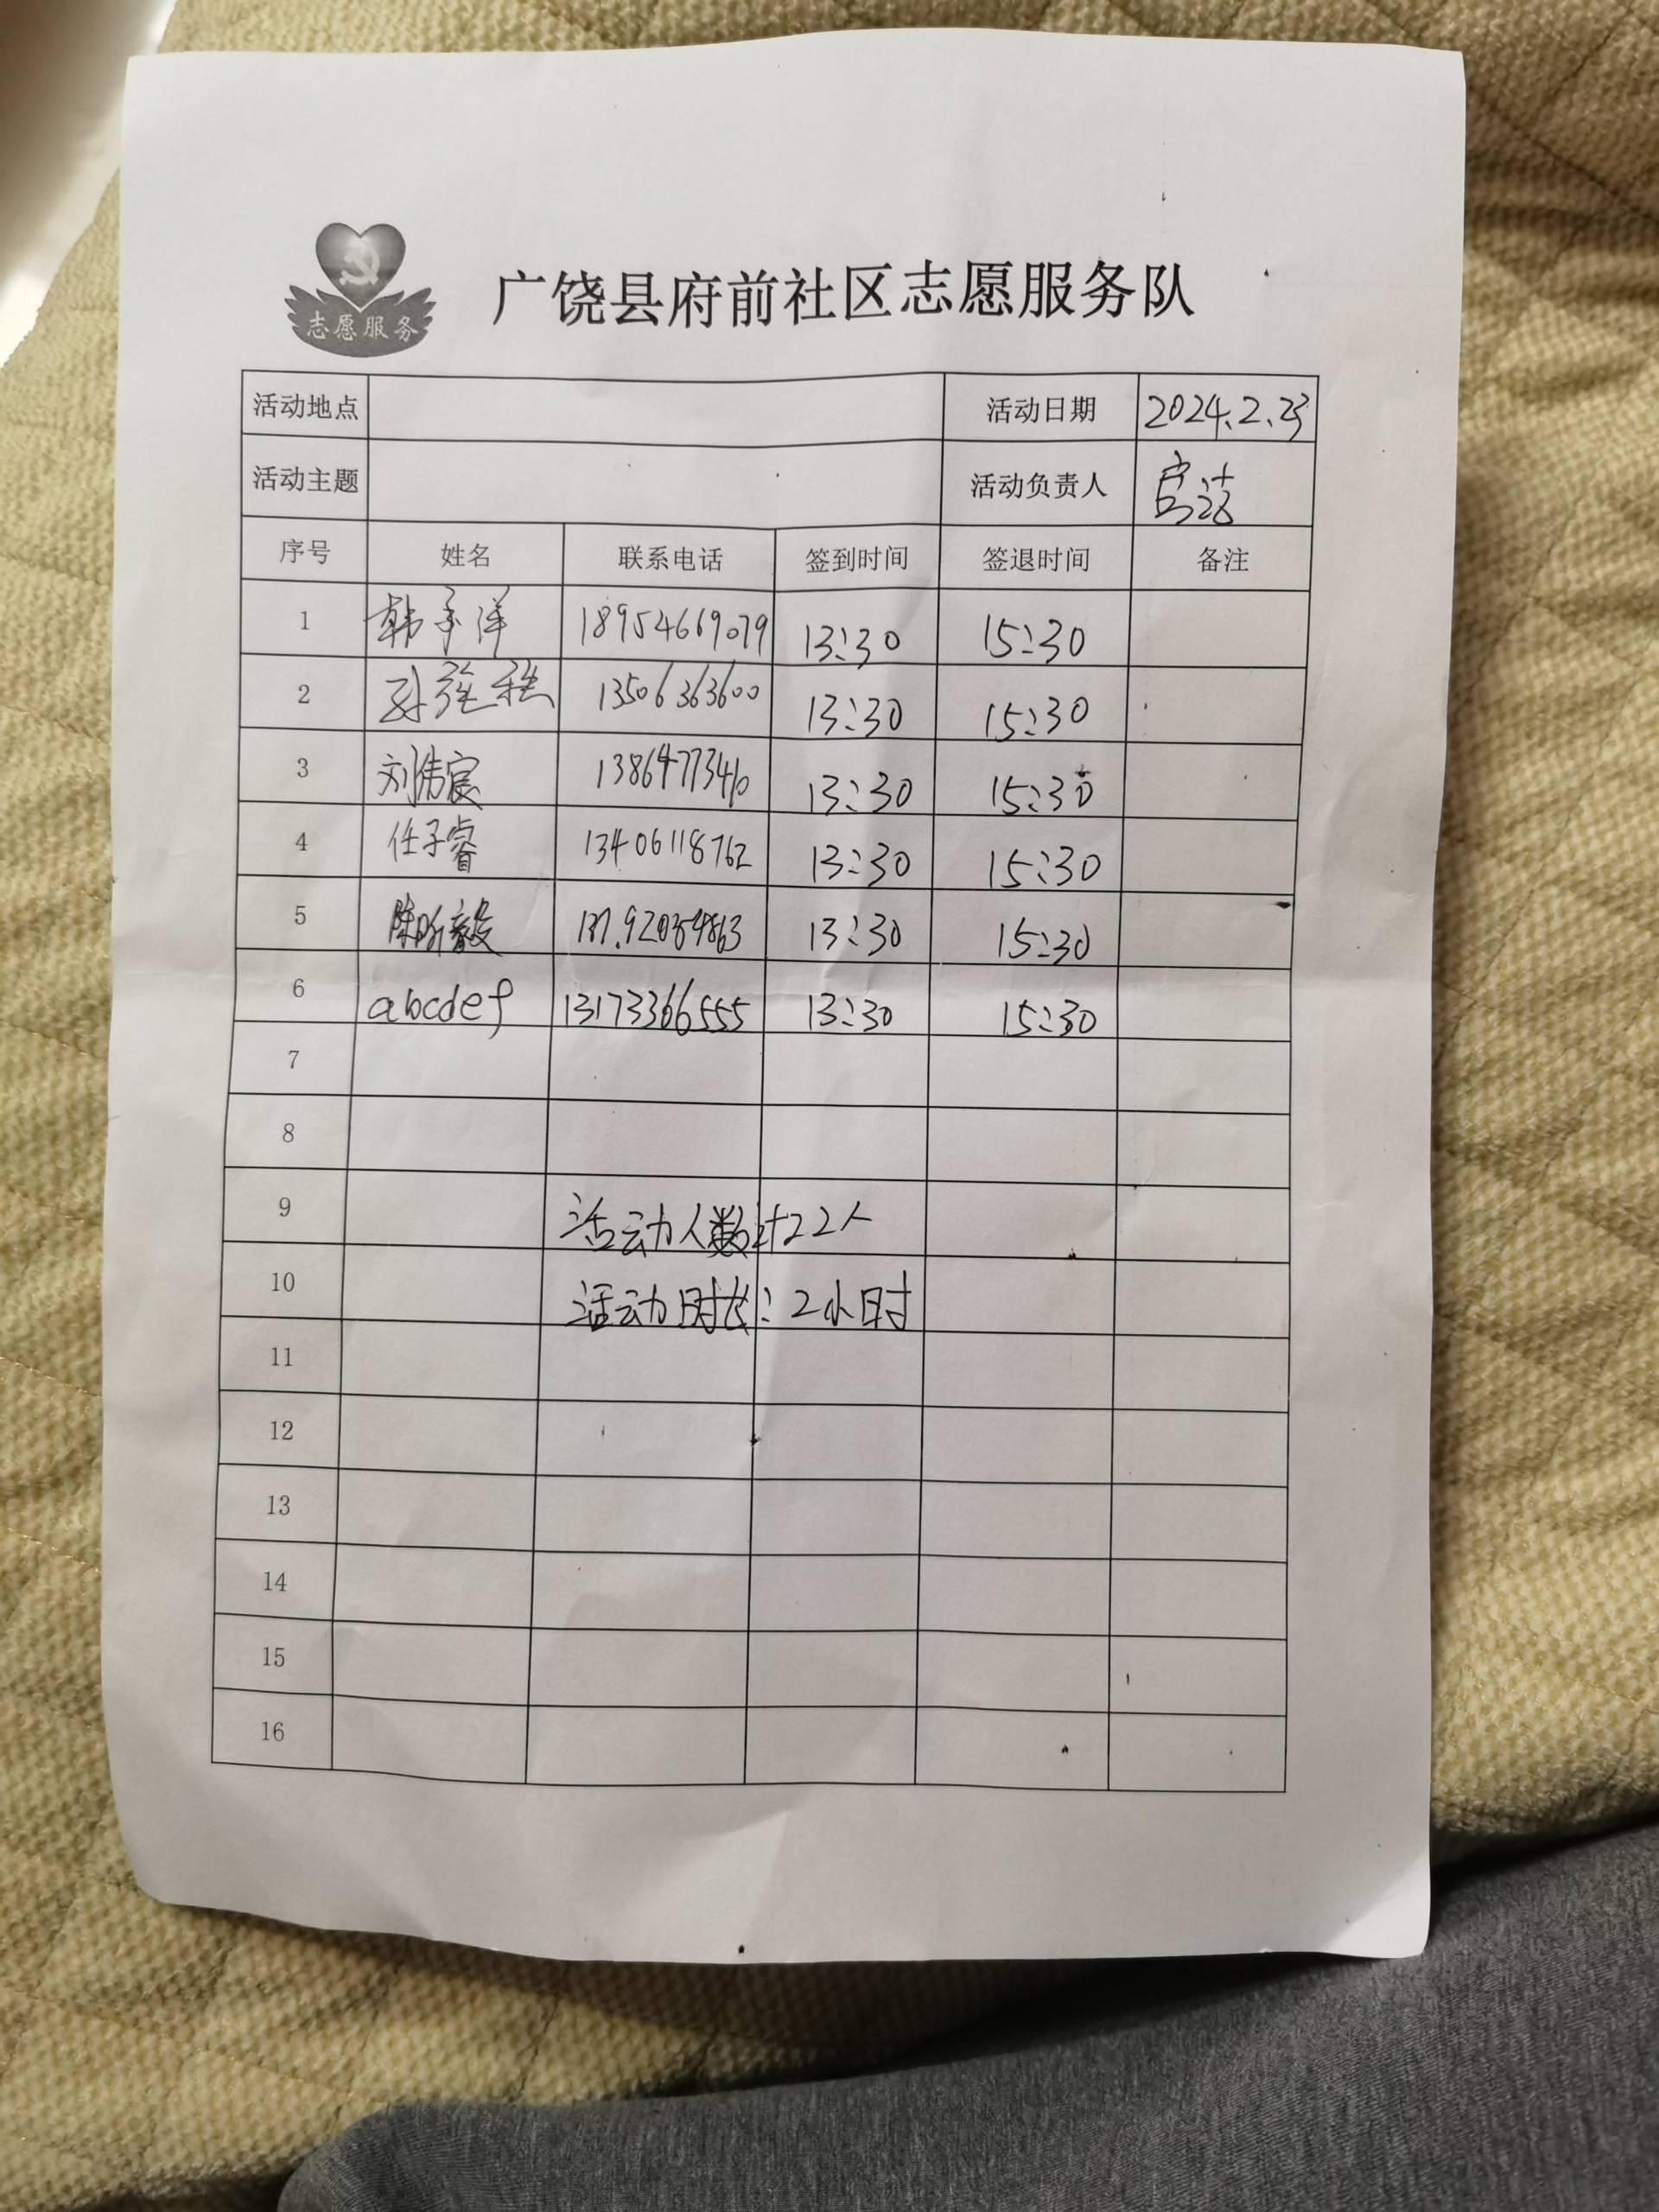 志愿服务
广饶县府前社区志愿服务队
活动地点 活动日期 2024.2.23
活动主题 活动负责人
序号 姓名 联系电话 签到时间 签退时间 备注
1 韩子洋 18954669079 13:30 15:30
2 孙 13506363600 13:30 15:30
3 刘伟宸 13:30 15:30
4 任子睿 13406118762 13:30 15:30
5 陈昕毅 13:30 15:30
6 abcdef 13173366555 13:30 15:30
7
8
9 活动人数:计22人
10 活动时长:2小时
11
12
13
14
15
16